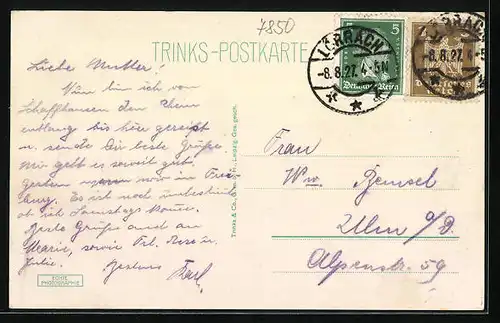 7850
TRINKS-POSTKARTE
LÖRRACH
-8.8.27. 4-5N
5
Deutsches Reich
LÖRRACH
-8.8.27. 4-5
Liebe Mutter!
Nun bin ich von
Schaffhausen den Rhein
entlang bis hier gereist
u. sende Dir beste Grüße.
Mir geht es soweit gut,
gestern waren wir in Frei-
burg. Es ist noch unbestimmt
ob ich Samstags komme.
Beste Grüße auch an
Marie, sowie Frl. Rosa u.
Julie.
Karl
ECHTE
PHOTOGRAPHIE
Trinks & Co., Leipzig. Ges. gesch.
Frau
Ww. Bensel
Ulm a/D.
Alpenstr. 59